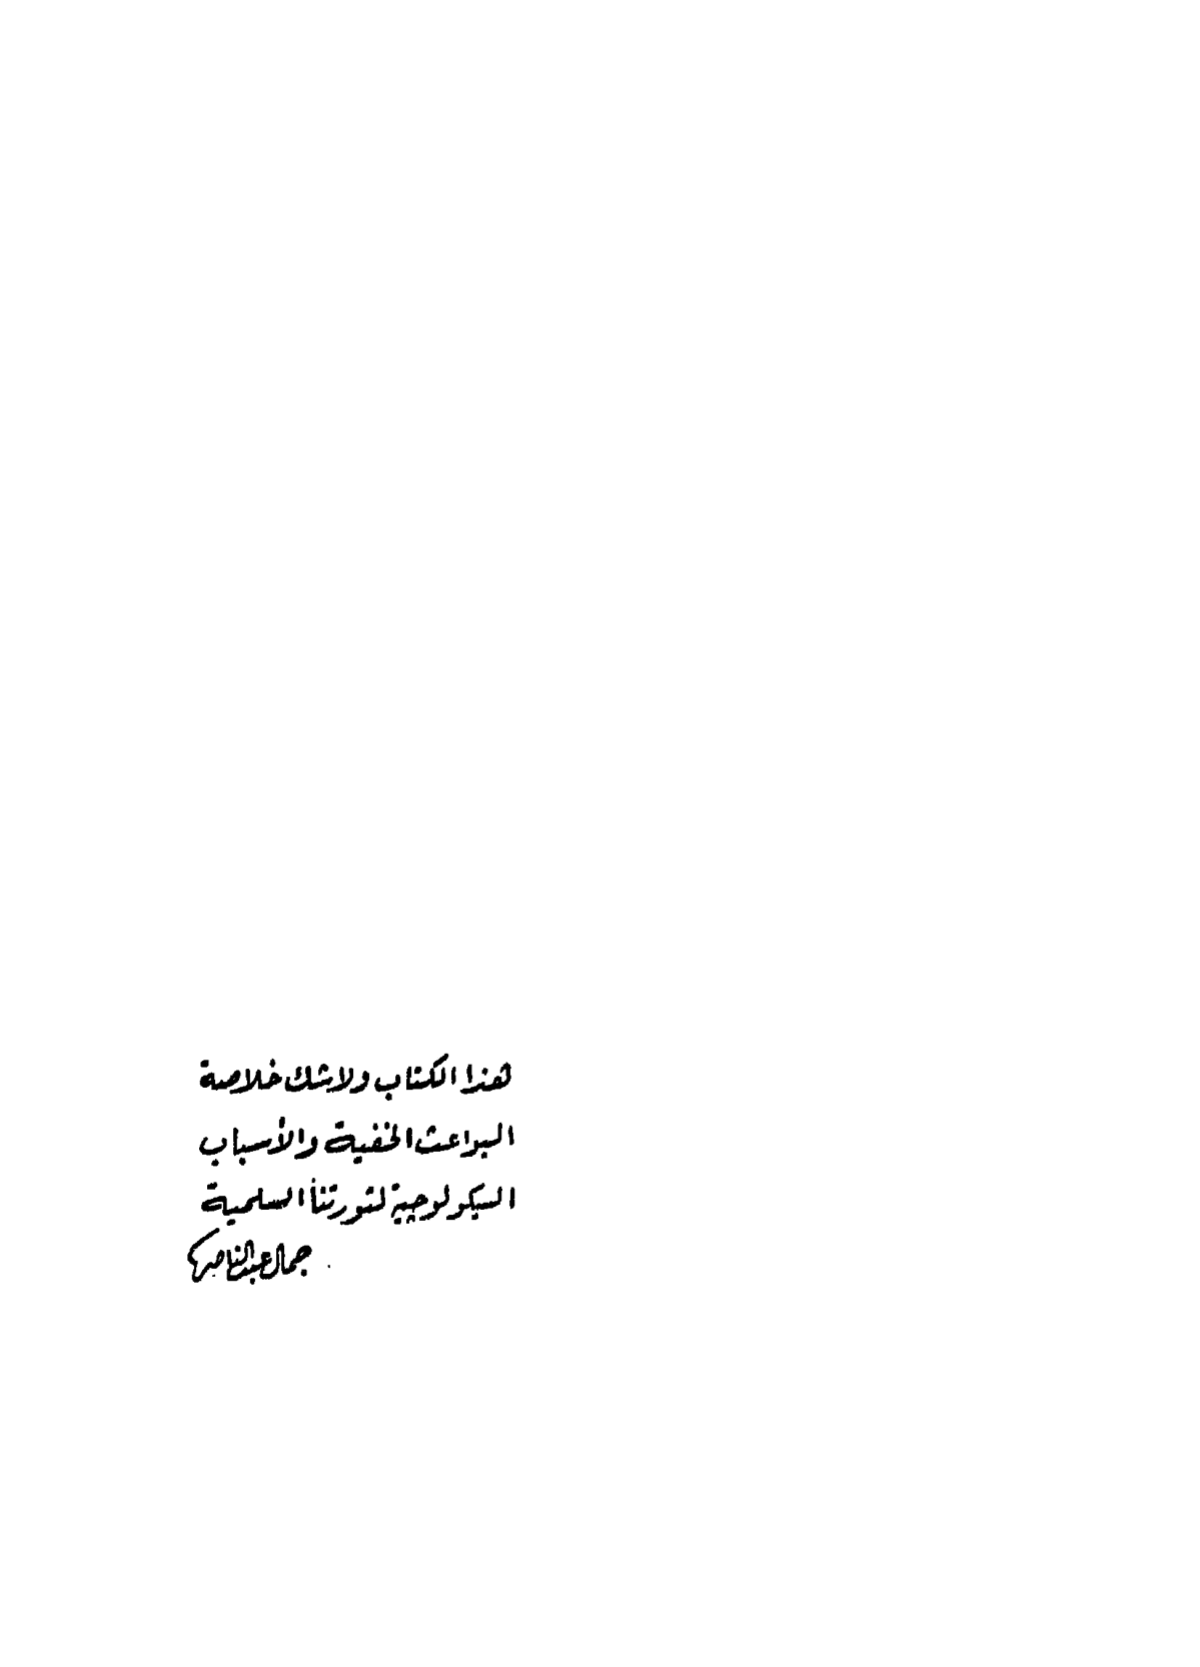 هذا الكتاب ولاشك خلاصة
البواعث الخفية والأسباب
السيكولوجية لثورتنا السلمية
جمال عبد الناصر